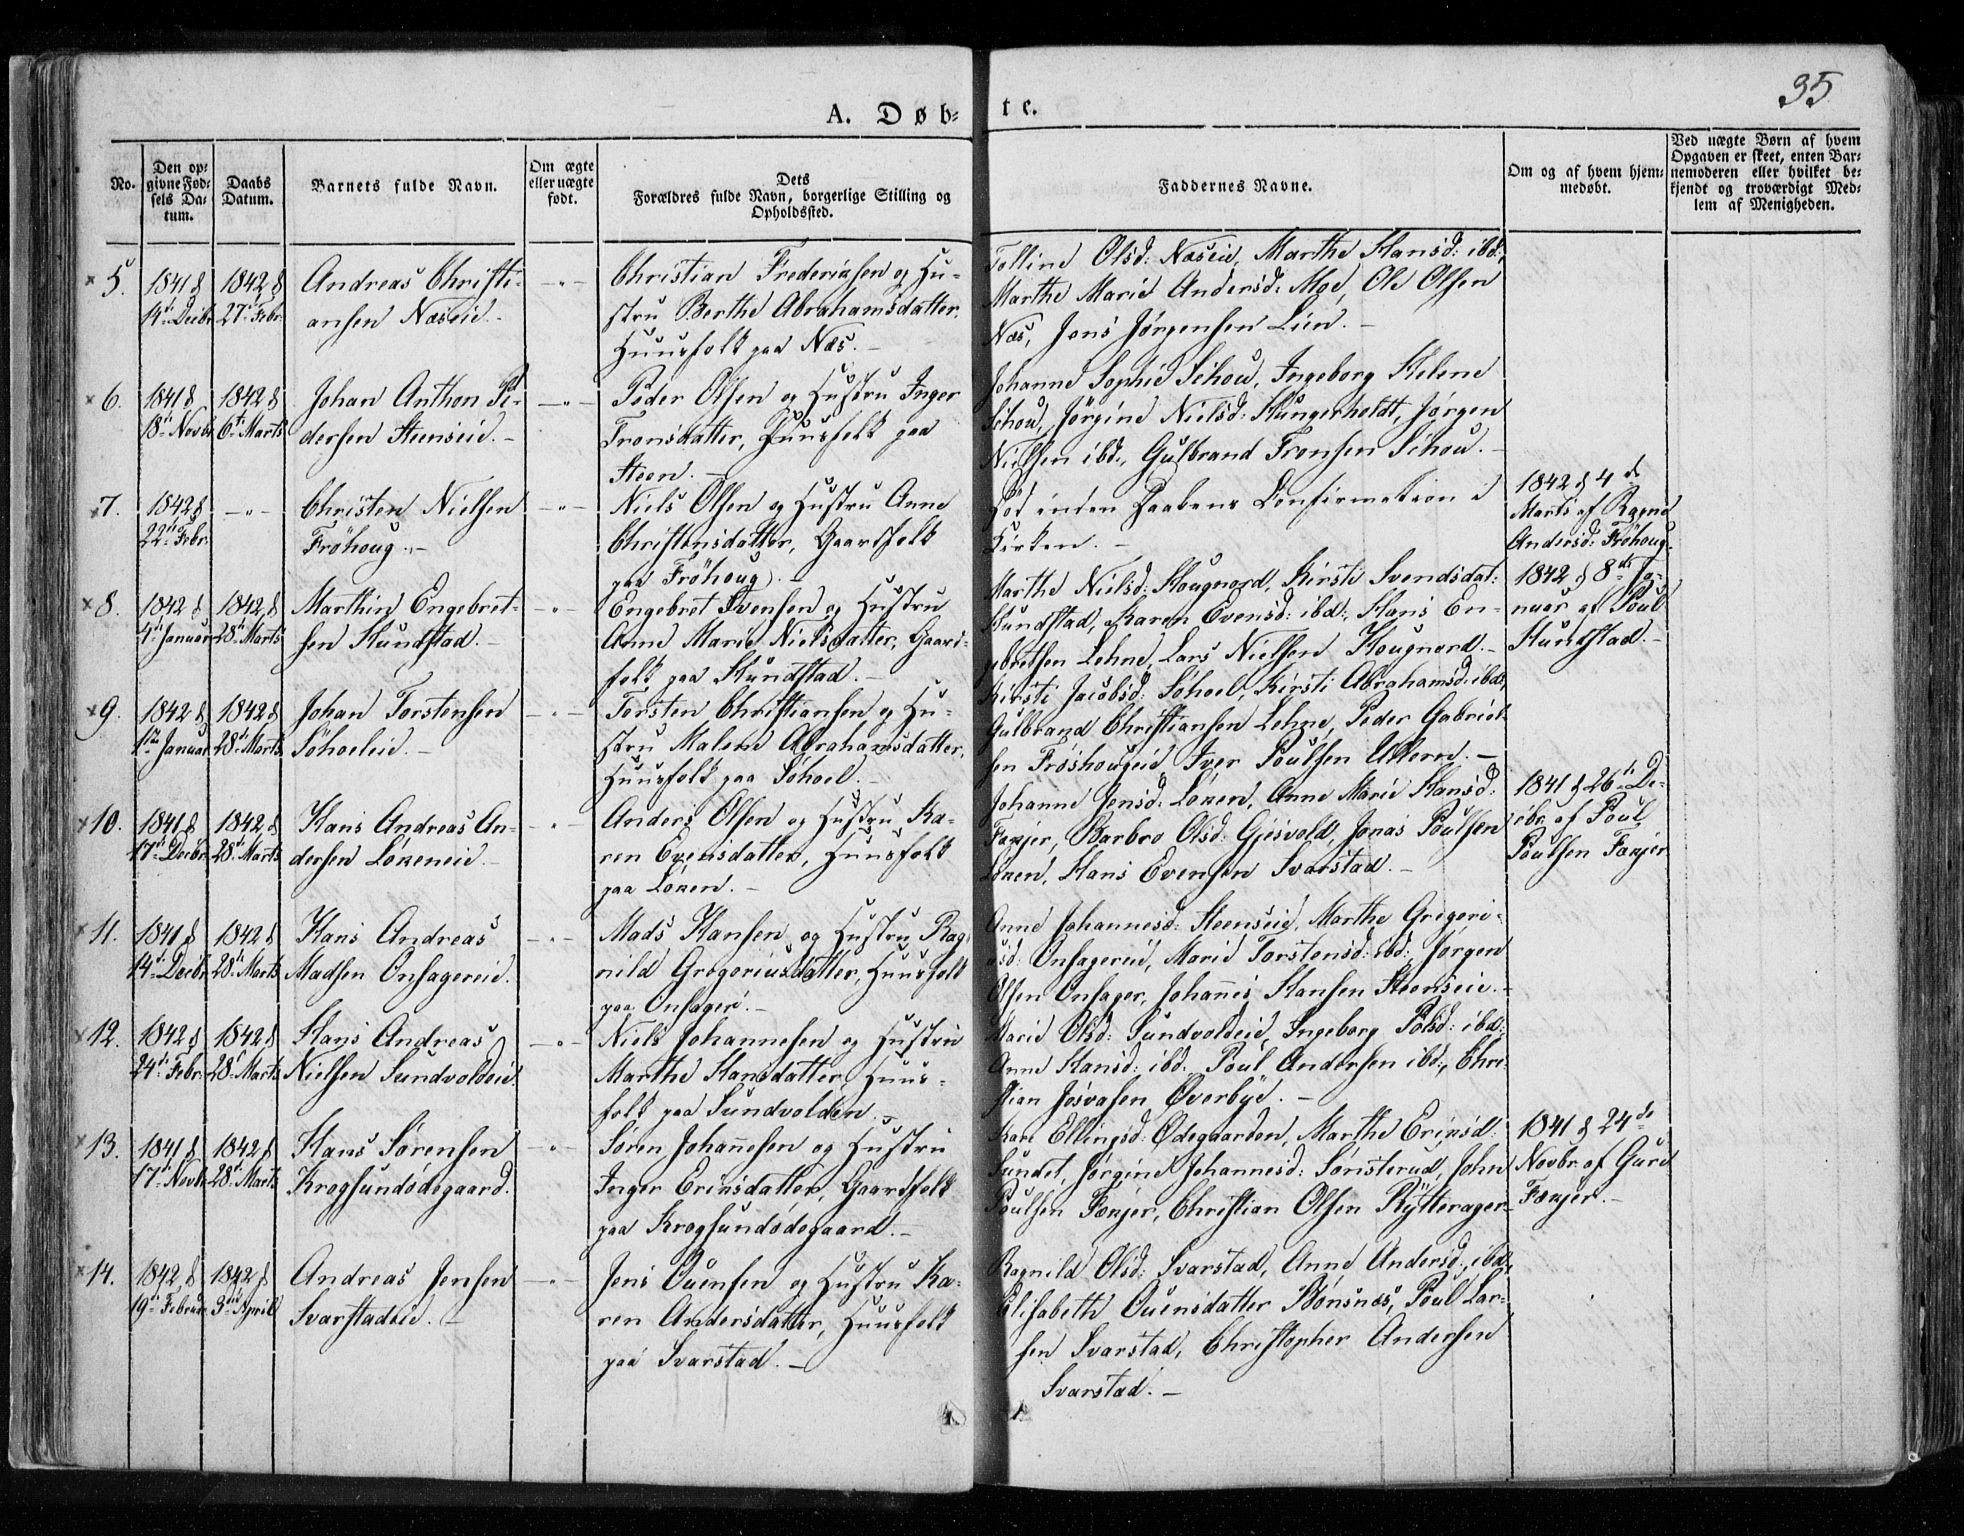 35
A. Døb-te.
No.
Den op-
givne Fød-
sels Da-
tum.
Daabs
Datum.
Barnets fulde Navn.
Om ægte
eller uægte
født.
Dets
Forældres fulde Navn, borgerlige Stilling og
Opholdssted.
Faddernes Navne.
Om og af hvem hjem-
medøbt.
Ved uægte Børn af hvem
Opgaven er skeet, enten Bar-
nemoderen eller hvilket be-
kjendt og troværdigt Med-
lem af Menigheden.
5.
1841 d
14de Decbr.
1842 d
27de Febr.
Andreas Christi-
ansen Næseie.
Christian Frederiksen og Hu-
stru Berthe Abrahamsdatter,
Huusfolk paa Næs.
Olsd: Næseie, Marthe Hansd: ibd:,
Marthe Marie Andersd: Moe, Ole Olsen
Næs, Jens Jørgensen Lien.
6.
1841 d
18de Novbr.
1842 d
6te Marts
Johan Anthon Pe-
dersen Steenseie.
Peder Olsen og Hustru Inger
Tronsdatter, Huusfolk paa
Steen.
Johanne Sophie Schou, Ingeborg Helene
Schou, Jørgine Nielsd: Hungerholdt, Jørgen
Nielsen ibd., Gulbrand Tronsen Schou.
7.
1842 d
22de Febr.
Christen Nielsen
Fröhoug.
Niels Olsen og Hustru Anne
Christensdatter, Gaardfolk
paa Fröhoug.
Död inden Daabens Confirmation i
Kirken.
1842 d 4de
Marts af Ragne
Andersd: Fröhoug.
8.
1842 d
4de Januar
1842 d
28de Marts
Marthin Engebret-
sen Hundstad.
Engebret Svensen og Hustru
Anne Marie Nielsdatter, Gaard-
folk paa Hundstad.
Marthe Nielsd: Hougnord, Kirsti Svendsdat:
Hundstad, Karen Evensd: ibd:, Hans En-
gebretsen Lehne, Lars Nielsen Hougnord.
1842 d 8de Ja-
nuar af Poul
Hundstad.
9.
1842 d
1ste Januar
1842 d
28de Marts
Johan Torstensen
Söhoeleie.
Torsten Christiansen og Hu-
stru Malene Abrahamsdatter,
Huusfolk paa Söhoel.
Kirsti Jacobsd: Söhoel, Kirsti Abrahamsd: ibd:,
Gulbrand Christiansen Lehne, Peder Gabriel-
sen Fröshougeie, Iver Poulsen Ulleren.
10.
1841 d
17de Decbr.
1842 d
28de Marts
Hans Andreas An-
dersen Löneneie.
Anders Olsen og Hustru Ka-
ren Evensdatter, Huusfolk
paa Lönen.
Johanne Jensd: Lönen, Anne Marie Hansd:
Fækjer, Barbro Olsd: Gjesvold, Jonas Poulsen
Lönen, Hans Evensen Svarstad.
1841 d 26de De-
cbr. af Poul
Poulsen Fækjer
11.
1841 d
14de Decbr.
1842 d
28de Marts
Hans Andreas
Madsen Onsagereie.
Mads Hansen og Hustru Rag-
nild Gregoriusdatter, Huusfolk
paa Onsager.
Anne Johannesd: Steenseie, Marthe Gregeri-
usd: Onsagereie, Marie Torstensd: ibd: Jørgen
Olsen Onsager, Johannes Hansen Steenseie.
12.
1842 d
24de Febr.
1842 d
28de Marts
Hans Andreas
Nielsen Sundvoldeie.
Niels Johannesen og Hustru
Marthe Hansdatter, Huus-
folk paa Sundvolden.
Marie Olsd: Sundvoldeie, Ingeborg Polsd: ibd:,
Anne Hansd: ibd. Poul Andersen ibd:, Chri-
stian Jösvasen Øverbye.
13.
1841 d
17de Novbr.
1842 d
28de Marts
Hans Sörensen
Krogsundödegaard.
Sören Johannesen og Hustru
Inger Ericsdatter, Gaardfolk
paa Krogsundödegaard.
Kari Ellingsd: Ødegaarden, Marthe Ericsd:
Sundet, Jørgine Johannesd: Sönsterud, John
Poulsen Fækjer, Christian Olsen Rytterager.
1841 d 24de
Novbr. af Guri
Fækjer.
14.
1842 d
19de Februar
1842 d
3die April
Andreas Jensen
Svarstadeie.
Jens Ouensen og Hustru Ka-
ren Andersdatter, Huusfolk
paa Svarstad.
Ragnild Olsd: Svarstad, Anne Andersd:, ibd:,
Elisabeth Ouensdatter Bönsnæs, Poul Lar-
sen Svarstad, Christopher Andersen
Svarstad.